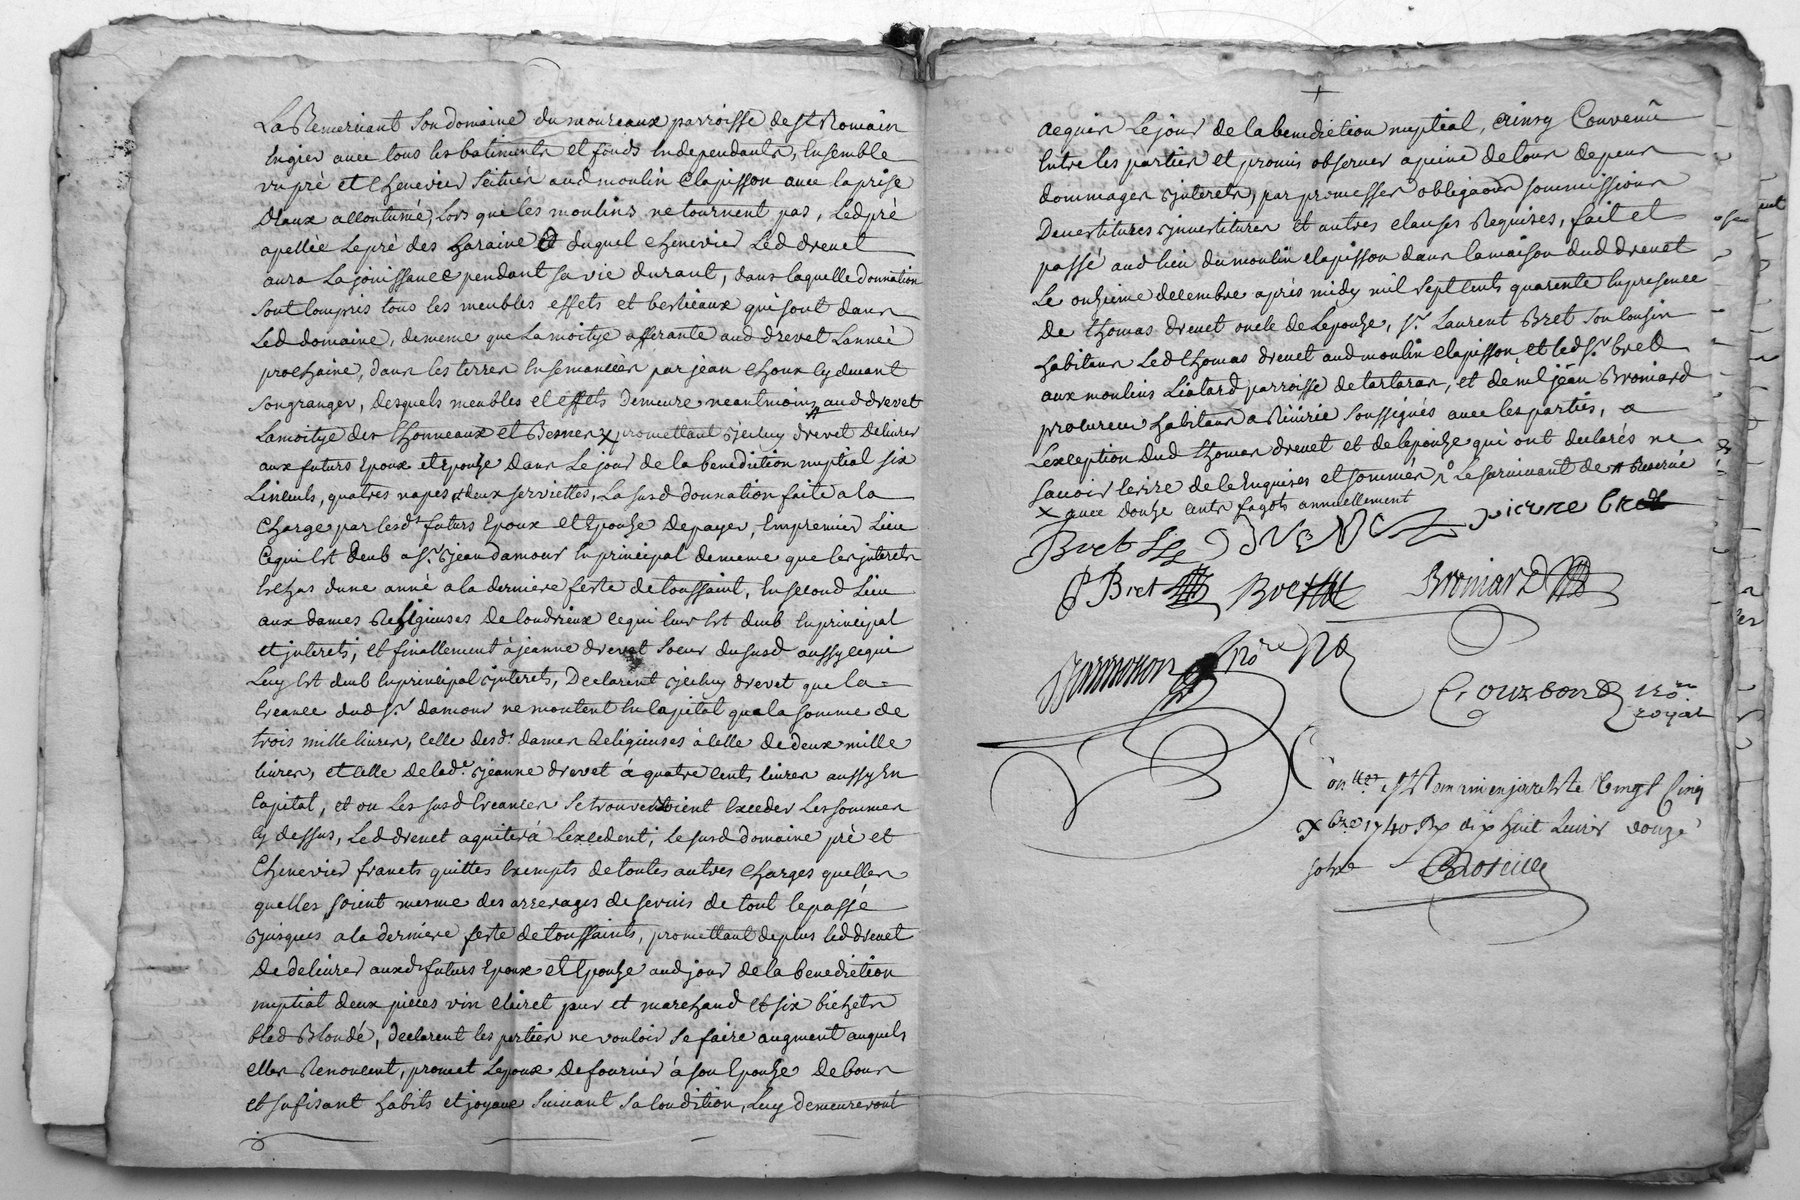 La Remeriant son domaine du moureaux parroisse de st Romain
en gier avec tous les batiments et fonds en dependants, ensemble
un pré et chenevier scitués aud moulin Clapisson avec la prise
d'eaux accoutumé, Lors que les moulins ne tournent pas, Led pré
apellée Le pré des Garaine et duquel chenevier Led drevet
aura La jouissance pendant sa vie durant, dans laquelle donnation
sont Compris tous les meubles effets et bestieaux qui sont dans
Led domaine, de meme que La moitye afferante aud drevet Lanneé
prochaine, dans les terres Ensemancées par jean Choux cy devant
son granger, desquels meubles et effets demeure neantmoins aud drevet
La moitye des thonneaux et Bennes x promettant jceluy drevet delivrer
aux futurs Epoux et Epouze dans Le jour de la benediction nuptial six
Linceuls, quatres napes et deux serviettes, La susd donnation faite a la
charge par lesds futurs Epoux et Epouze de payer, En premier Lieu
Ce qui Est deub a sr. jean damour En principal de meme que les jnterets
Echus dune anné a la derniere feste de toussaint, En second Lieu
aux dames Religieuses de Condrieux ce qui leur Est deub En principal
et jnterets, et finallement à jeanne drevet soeur du susd aussy ce qui
Luy Est deub En principal jnterets, Declarent jceluy drevet que la=
Creance dud sr. damour ne montent En Capital qua la somme de
trois mille livres, Celle desds. dames Religieuses à Celle de deux mille
livres, et Celle de lade. jeanne drevet à quatre cents livres aussy En
Capital, et ou Les susd Creances se trouveroient Exceder Les sommes
cy dessus, Led drevet aquitera Lexcedent, le susd domaine pré et
Chenevier francts quittes Exempts de toutes autres Charges quelles
quelles soient mesme des arrerages de servis de tout le passé
jusques a la derniere feste de toussaints, promettant de plus led drevet
de delivrer auxds futurs Epoux et Epouze aud jour de la benediction
nuptial deux pieces vin clairet pur et marchand et six bichets
bled Blondé, declarent les parties ne vouloir se faire augment auquels
elles Renoncent, promet Lepoux de fournir à son Epouze de bons
et sufisant habits et joyaux suivant sa Condition, Luy demeureront
acquis Le jour de la benediction nuptial, ainsy Convenû
Entre les parties et promis observer a peine de tous depens
dommages jnterets, par promesses obligaôns soummissions
Devestitures jnvestitures et autres clauses Requises, fait et
passé aud lieu du moulin clapisson dans la maison dud drevet
Le onzieme decembre aprés midy mil sept cents quarente En presence
De thomas drevet oncle de Lepouze, sr. Laurent Bret son Cousin
habitans Led thomas drevet aud moulin Clapisson et led sr. bret
aux moulins Liotard parroisse de tartaras, et de mr jean Broniard
procureur habitans a Riverie soussignés avec les parties, a
Lexception dud thomas drevet et de lepouze qui ont declarés ne
sçavoir ecrire de ce Enquises et sommés R Le survivant de Reservé
x avec douze cents fagots annuellement
Bret DREVET pierre bret
P Bret Bret Broniard
nore Ral
Crouzbon nore
royal
Conlle Et an rivenjareste Vingt Cinq
Xbre 1740 Rx dix huit Livres douze
sols